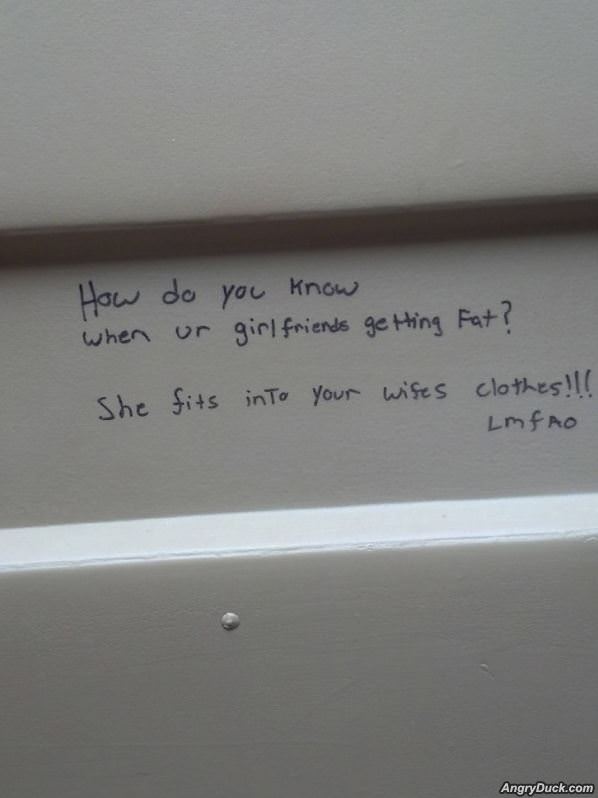 How do you know
when ur girlfriends getting Fat?
She fits inTo Your wifes clothes!!!
LmfAO
AngryDuck.com